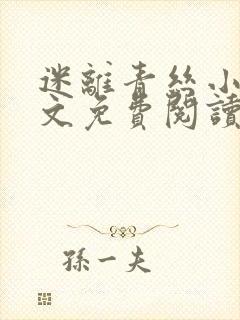 迷離青絲小
文免費閱讀
孫一夫